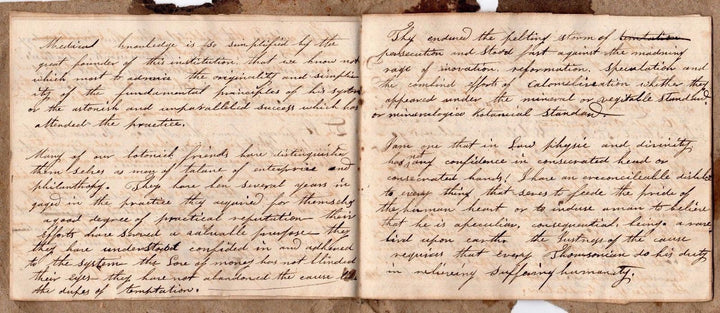 Medical knowledge is so simplified by the
great founder of this institution that we know not
which most to admire the originality and simplic
ity of the fundamental principles of his system
or the astonish and unparalleled success which has
attended the practice.
Many of our botonical friends have distinguished
them selves as men of talane of enterprise and
philanthofy. They have ben several years in
gaged in the practice they aquired for themselvs
a good degree of practical reputation their
efforts have served a valuable purpose they
they have understood confided in and adhered
to the system the love of money has not blinded
their eyes they have not abandoned the cause
the dupes of temptation.
They endured the pelting storm of
persecution and stood fast against the madning
rage of inovation, reformation, speculation and
the combind effort of calomelisation whether they
appeared under the mineral or vegitable standard
or mineralogico botanical standard.
I am one that in Law physic and divinity
has not any confidence in consecrated head or
consecrated hands! I have an ireconcileable dislike
to every thing that serves to feede the pride of
the human heart or to induce a man to believe
that he is a peculiar, consequential, being, a rare
bird upon earth. the justness of the cause
requires that every Thomsonian do his duty
in relieving suffering humanity.